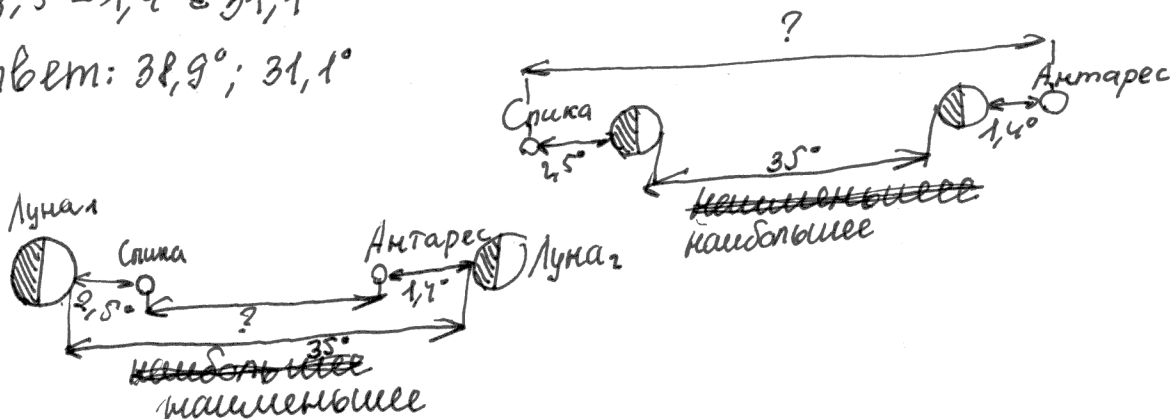 Ответ: 38,9°; 31,1°
?
Спика
Антарес
2,5°
1,4°
35°
наименьшее
наибольшее
Луна₁
Спика
Антарес
Луна₂
2,5°
1,4°
?
35°
наибольшее
наименьшее